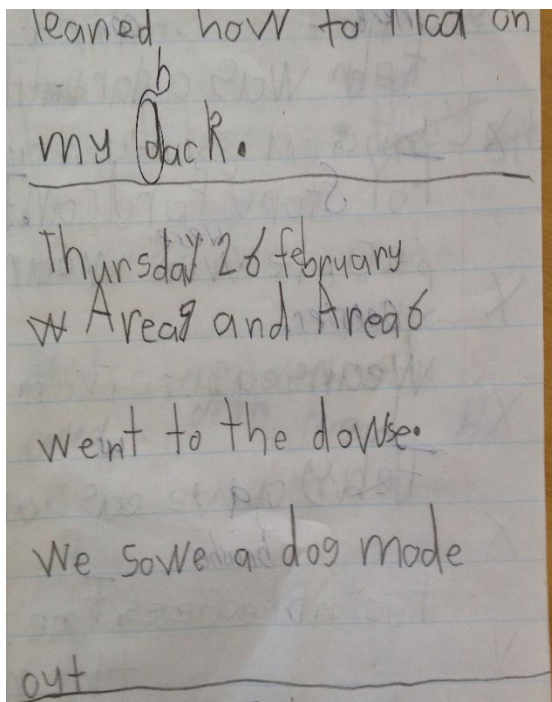 leaned how to flod on
b
my dack.
Thursday 26 february
Area9 and Area6
weint to the dowse.
We sowe a dog mode
out